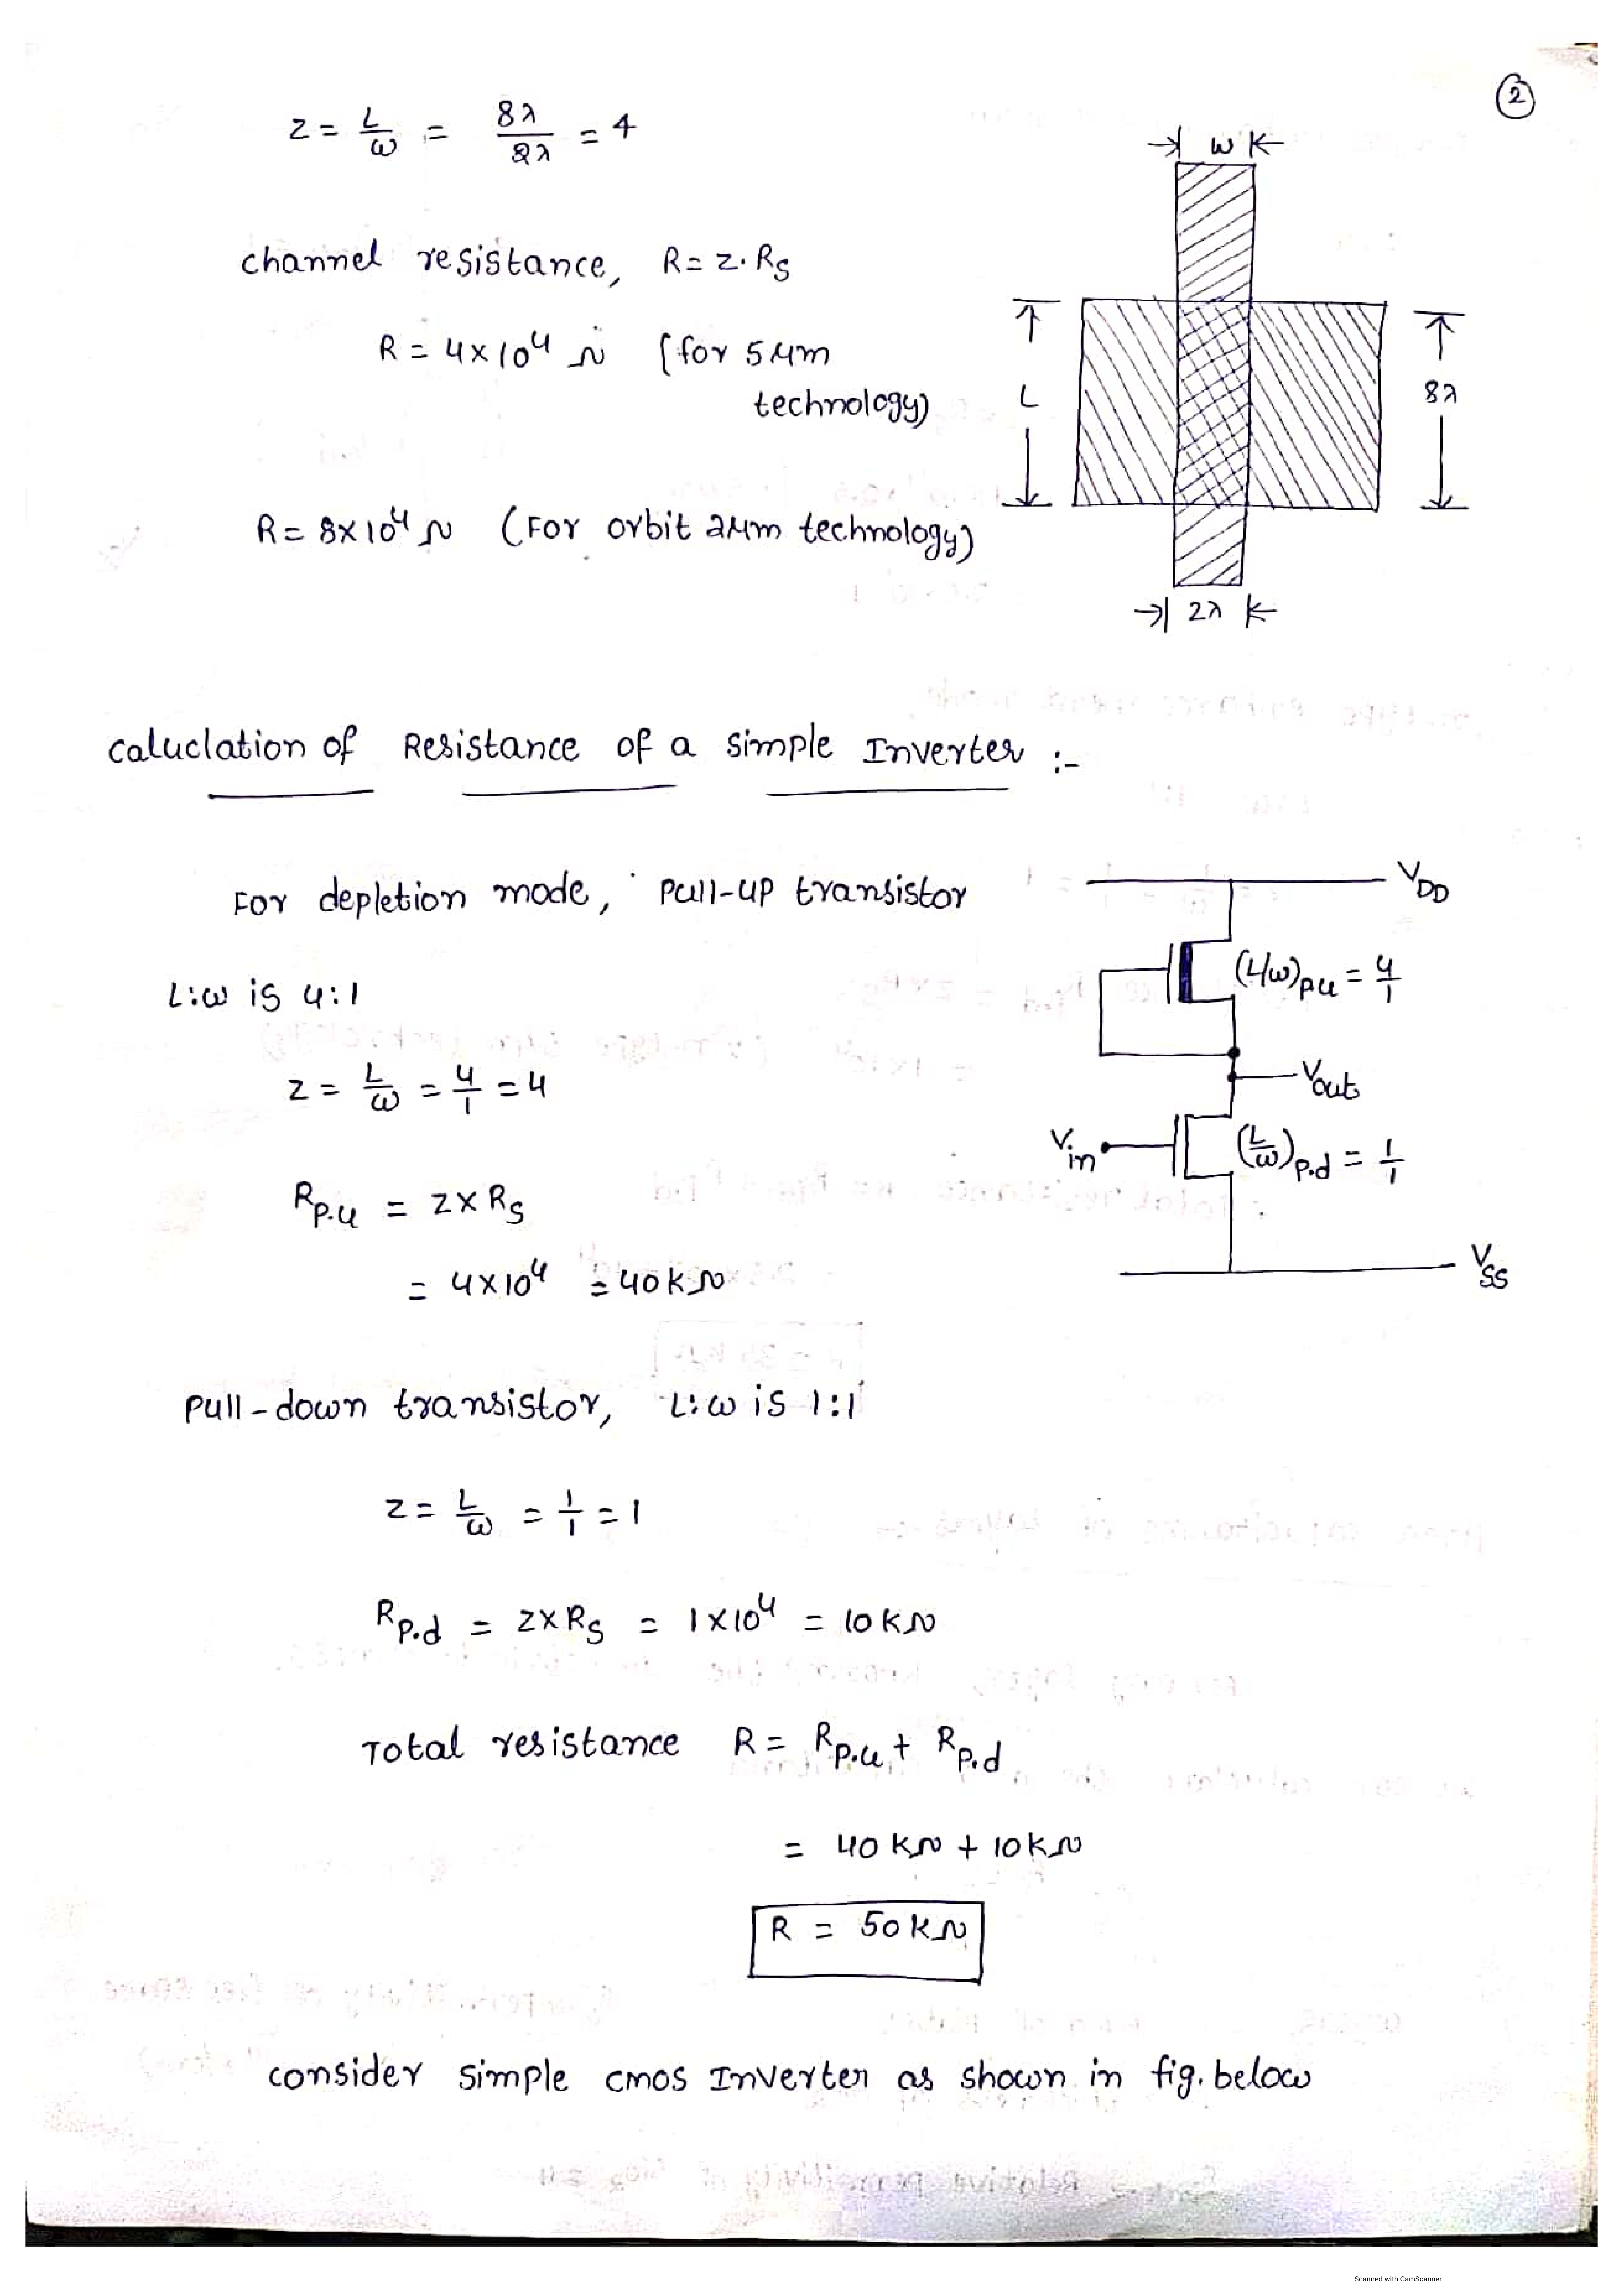 2
Z = L/ω = 8λ/2λ = 4
→| ω |←
channel resistance, R = Z·Rs
R = 4×10⁴ Ω (for 5μm
technology)
L
8λ
R = 8×10⁴ Ω (For orbit 2μm technology)
→| 2λ |←
caluclation of Resistance of a simple Inverter :-
For depletion mode, pull-up transistor
VDD
L:ω is 4:1
(L/ω)p.u = 4/1
Z = L/ω = 4/1 = 4
Vout
Vin
(L/ω)p.d = 1/1
Rp.u = Z×Rs
= 4×10⁴ = 40KΩ
VSS
pull-down transistor, L:ω is 1:1
Z = L/ω = 1/1 = 1
Rp.d = Z×Rs = 1×10⁴ = 10KΩ
Total resistance R = Rp.u + Rp.d
= 40KΩ + 10KΩ
R = 50KΩ
consider simple cmos Inverter as shown in fig. below
Scanned with CamScanner